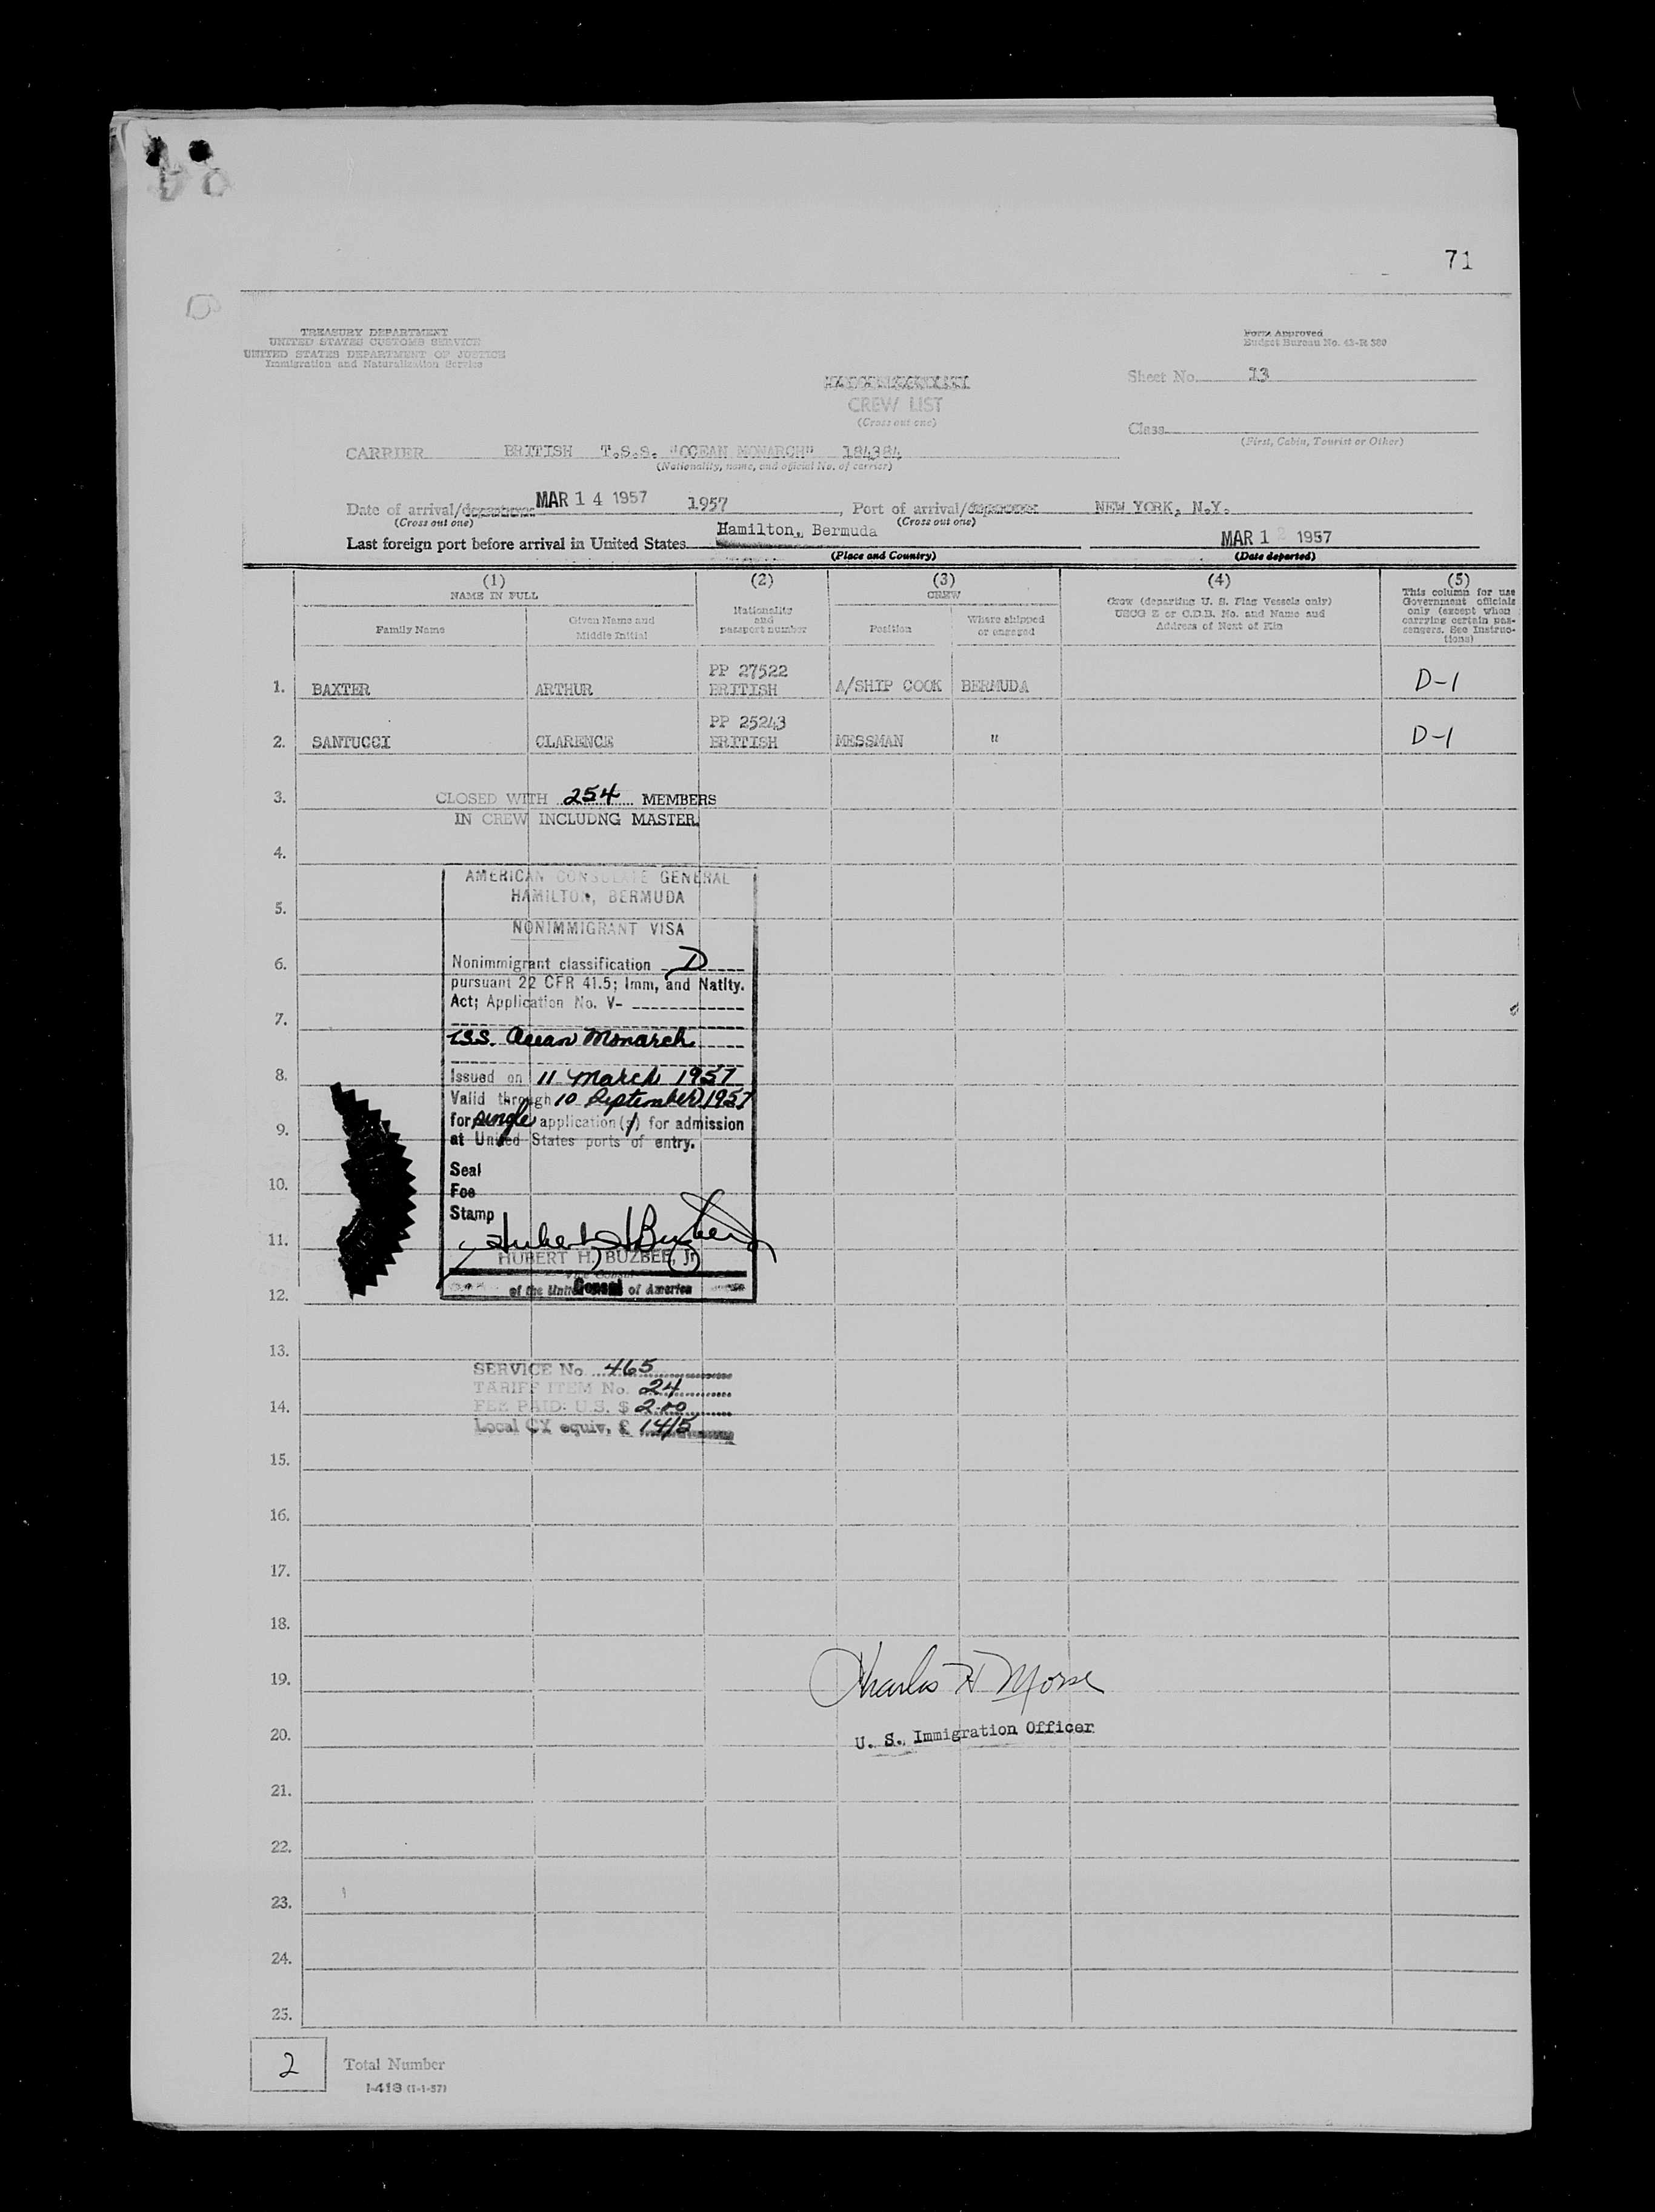 71
TREASURY DEPARTMENT
UNITED STATES CUSTOMS SERVICE
UNITED STATES DEPARTMENT OF JUSTICE
Immigration and Naturalization Service
Form Approved
Budget Bureau No. 43-R 380
Sheet No. 13
CREW LIST
(Cross out one)
Class
(First, Cabin, Tourist or Other)
CARRIER BRITISH T.S.S. "OCEAN MONARCH" 184384
(Nationality, name, and official No. of carrier)
Date of arrival/departure MAR 14 1957 1957, Port of arrival/departure NEW YORK, N.Y.
(Cross out one) (Cross out one)
Last foreign port before arrival in United States Hamilton, Bermuda MAR 12 1957
(Place and Country) (Date departed)
(1) (2) (3) (4) (5)
NAME IN FULL
Family Name
Given Name and
Middle Initial
Nationality
and
passport number
CREW
Position
Where shipped
or engaged
Crew (departing U. S. Flag Vessels only)
USCG Z or C.D.B. No. and Name and
Address of Next of Kin
This column for use
Government officials
only (except when
carrying certain pas-
sengers. See Instruc-
tions)
1. BAXTER ARTHUR PP 27522 BRITISH A/SHIP COOK BERMUDA D-1
2. SANTUCCI CLARENCE PP 25243 BRITISH MESSMAN " D-1
3. CLOSED WITH 254 MEMBERS
IN CREW INCLUDNG MASTER.
4.
AMERICAN CONSULATE GENERAL
HAMILTON, BERMUDA
5.
NONIMMIGRANT VISA
6. Nonimmigrant classification D
pursuant 22 CFR 41.5; Imm, and Natlty.
Act; Application No. V-
7.
T.S.S. Ocean Monarch
8. Issued on 11 March 1957
Valid through 10 September 1957
for single application(s) for admission
9. at United States ports of entry.
Seal
10. Fee
Stamp
11. Hubert H Buzbee Jr
HUBERT H. BUZBEE, Jr.
Vice Consul
of the United Consul of America
12.
13.
SERVICE No. 465
TARIFF ITEM No. 24
14. FEE PAID: U.S. $ 2.00
Local CY equiv. £ 14/5
15.
16.
17.
18.
19. Charles H Morse
20. U. S. Immigration Officer
21.
22.
23.
24.
25.
2 Total Number
I-418 (1-1-57)